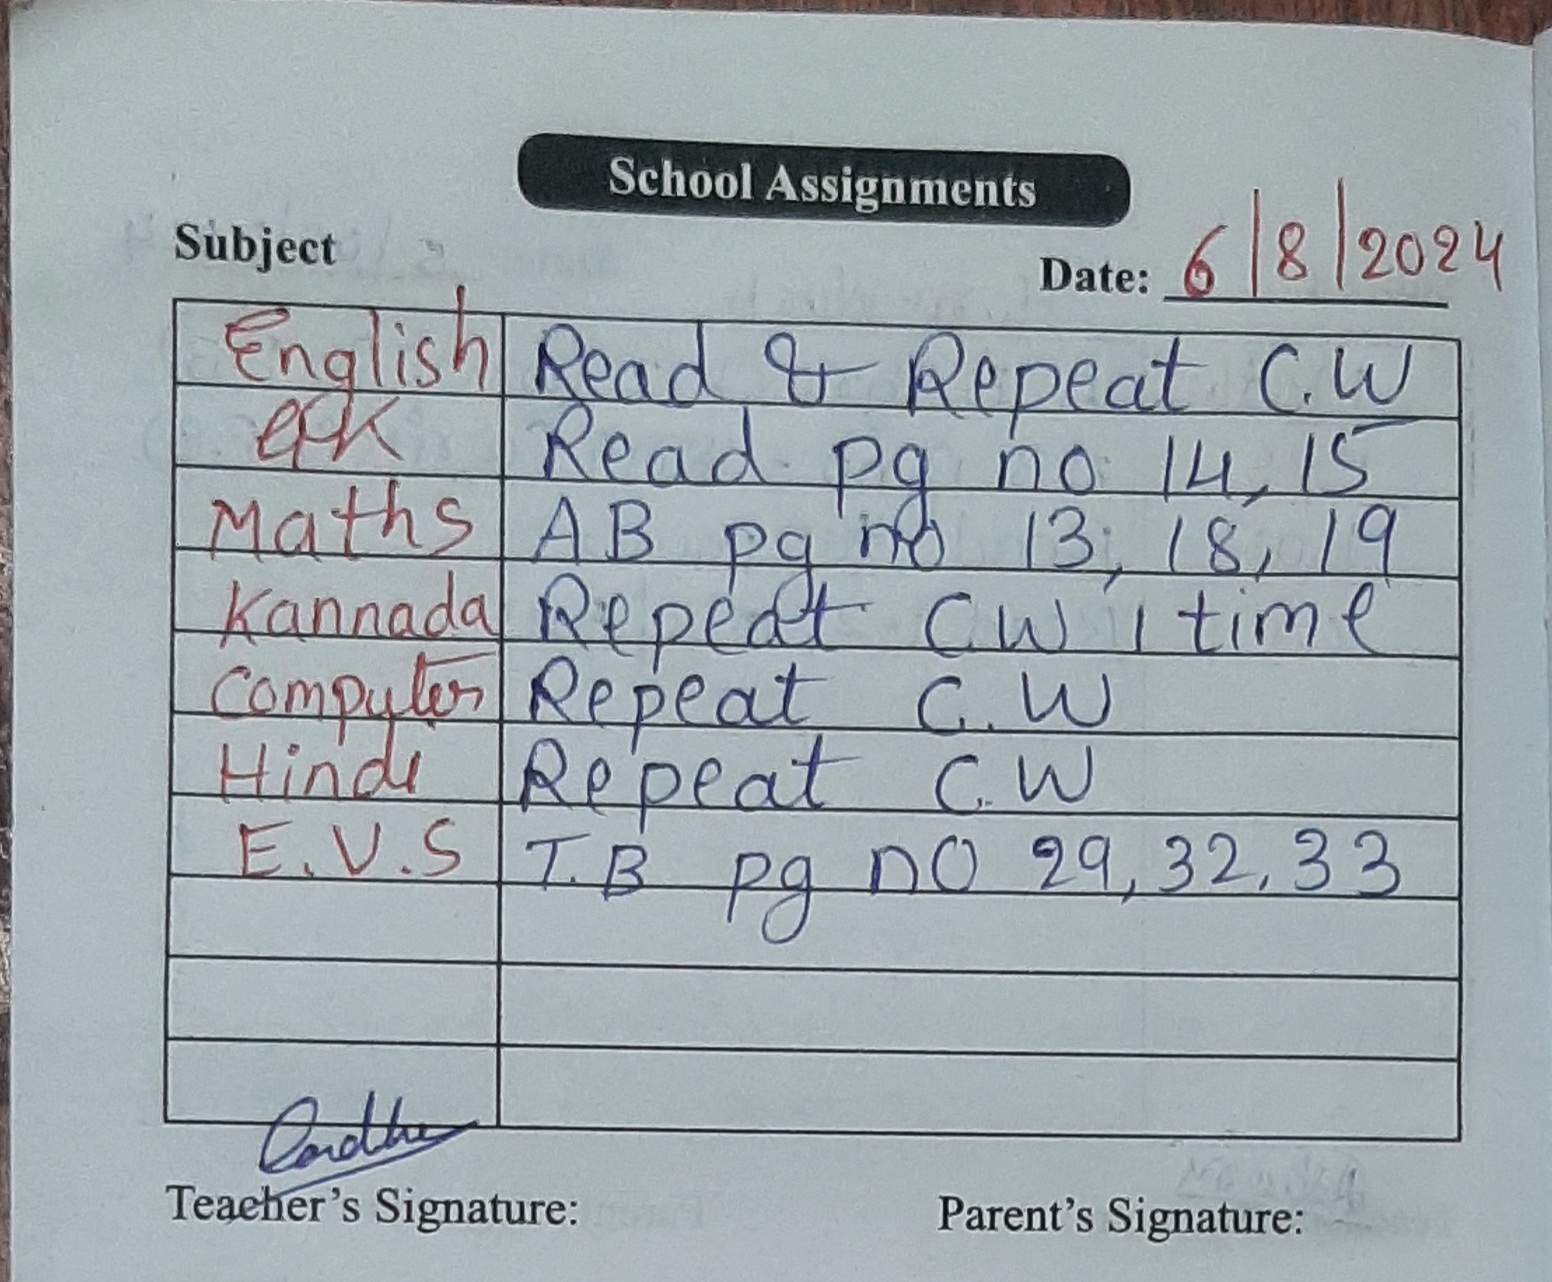 School Assignments
Subject
Date: 6/8/2024
English Read & Repeat C.W
GK Read pg no 14, 15
Maths AB pg no 13, 18, 19
Kannada Repeat CW 1 time
Computer Repeat C.W
Hindi Repeat C.W
E.V.S T.B pg no 29, 32, 33
Teacher's Signature: Parent's Signature: